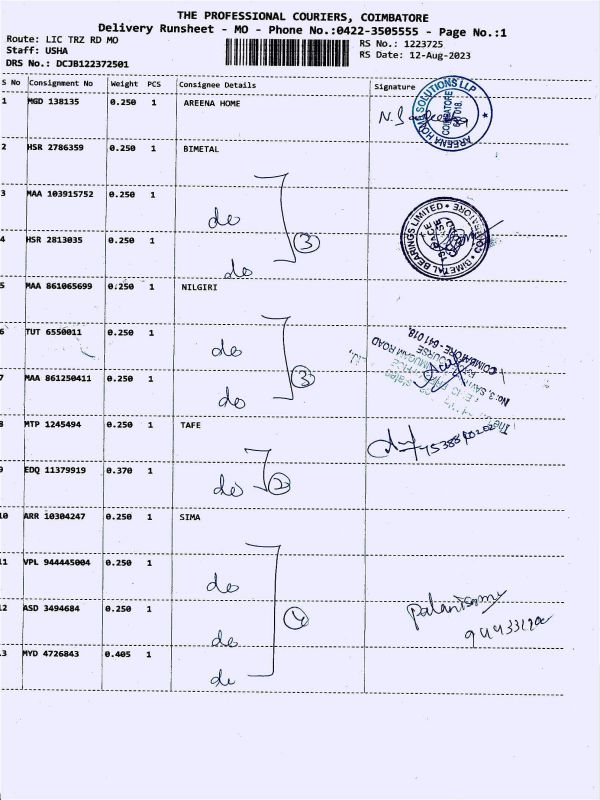 THE PROFESSIONAL COURIERS, COIMBATORE
Delivery Runsheet - MO - Phone No.:0422-3505555 - Page No.:1
Route: LIC TRZ RD MO
RS No.: 1223725
Staff: USHA
RS Date: 12-Aug-2023
DRS No.: DCJB122372501
S No Consignment No Weight PCS Consignee Details Signature
1 MGD 138135 0.250 1 AREENA HOME
AREENA HOME SOLUTIONS LLP
COIMBATORE
641 018.
2 HSR 2786359 0.250 1 BIMETAL
3 MAA 103915752 0.250 1 do
BIMETAL BEARINGS LIMITED
COIMBATORE
4 HSR 2813035 0.250 1 do 3
5 MAA 861065699 0.250 1 NILGIRI
6 TUT 6550011 0.250 1 do
COIMBATORE - 641 018.
7 MAA 861250411 0.250 1 do 3
8 MTP 1245494 0.250 1 TAFE
9 EDQ 11379919 0.370 1 do 2
10 ARR 10304247 0.250 1 SIMA
11 VPL 944445004 0.250 1 do
12 ASD 3494684 0.250 1 do 4
Palanisamy
13 MYD 4726843 0.405 1 do